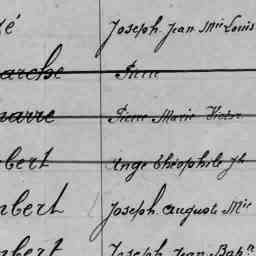 zé Joseph Jean Mie Louis
arche Pierre
narre Pierre Marie Victor
bert Ange Théophile Jh
nbert Joseph Auguste Mie
mbert Joseph Jean Bapte